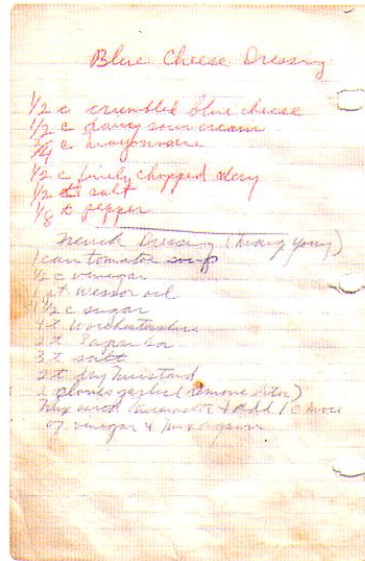 Blue Cheese Dressing
1/2 c crumbled blue cheese
1/2 c dairy sour cream
3/4 c mayonnaise
1/2 c finely chopped celery
1/2 t salt
1/8 t pepper
French Dressing (
1 can tomato soup
1/2 c vinegar
1 pt wesson oil
1 1/2 c sugar
4 t Worchestershire
2 t Paprika
3 t salt
2 t dry mustard
2 cloves garlic (remove later)
Mix and & add 1 c more
of vinegar & mix again